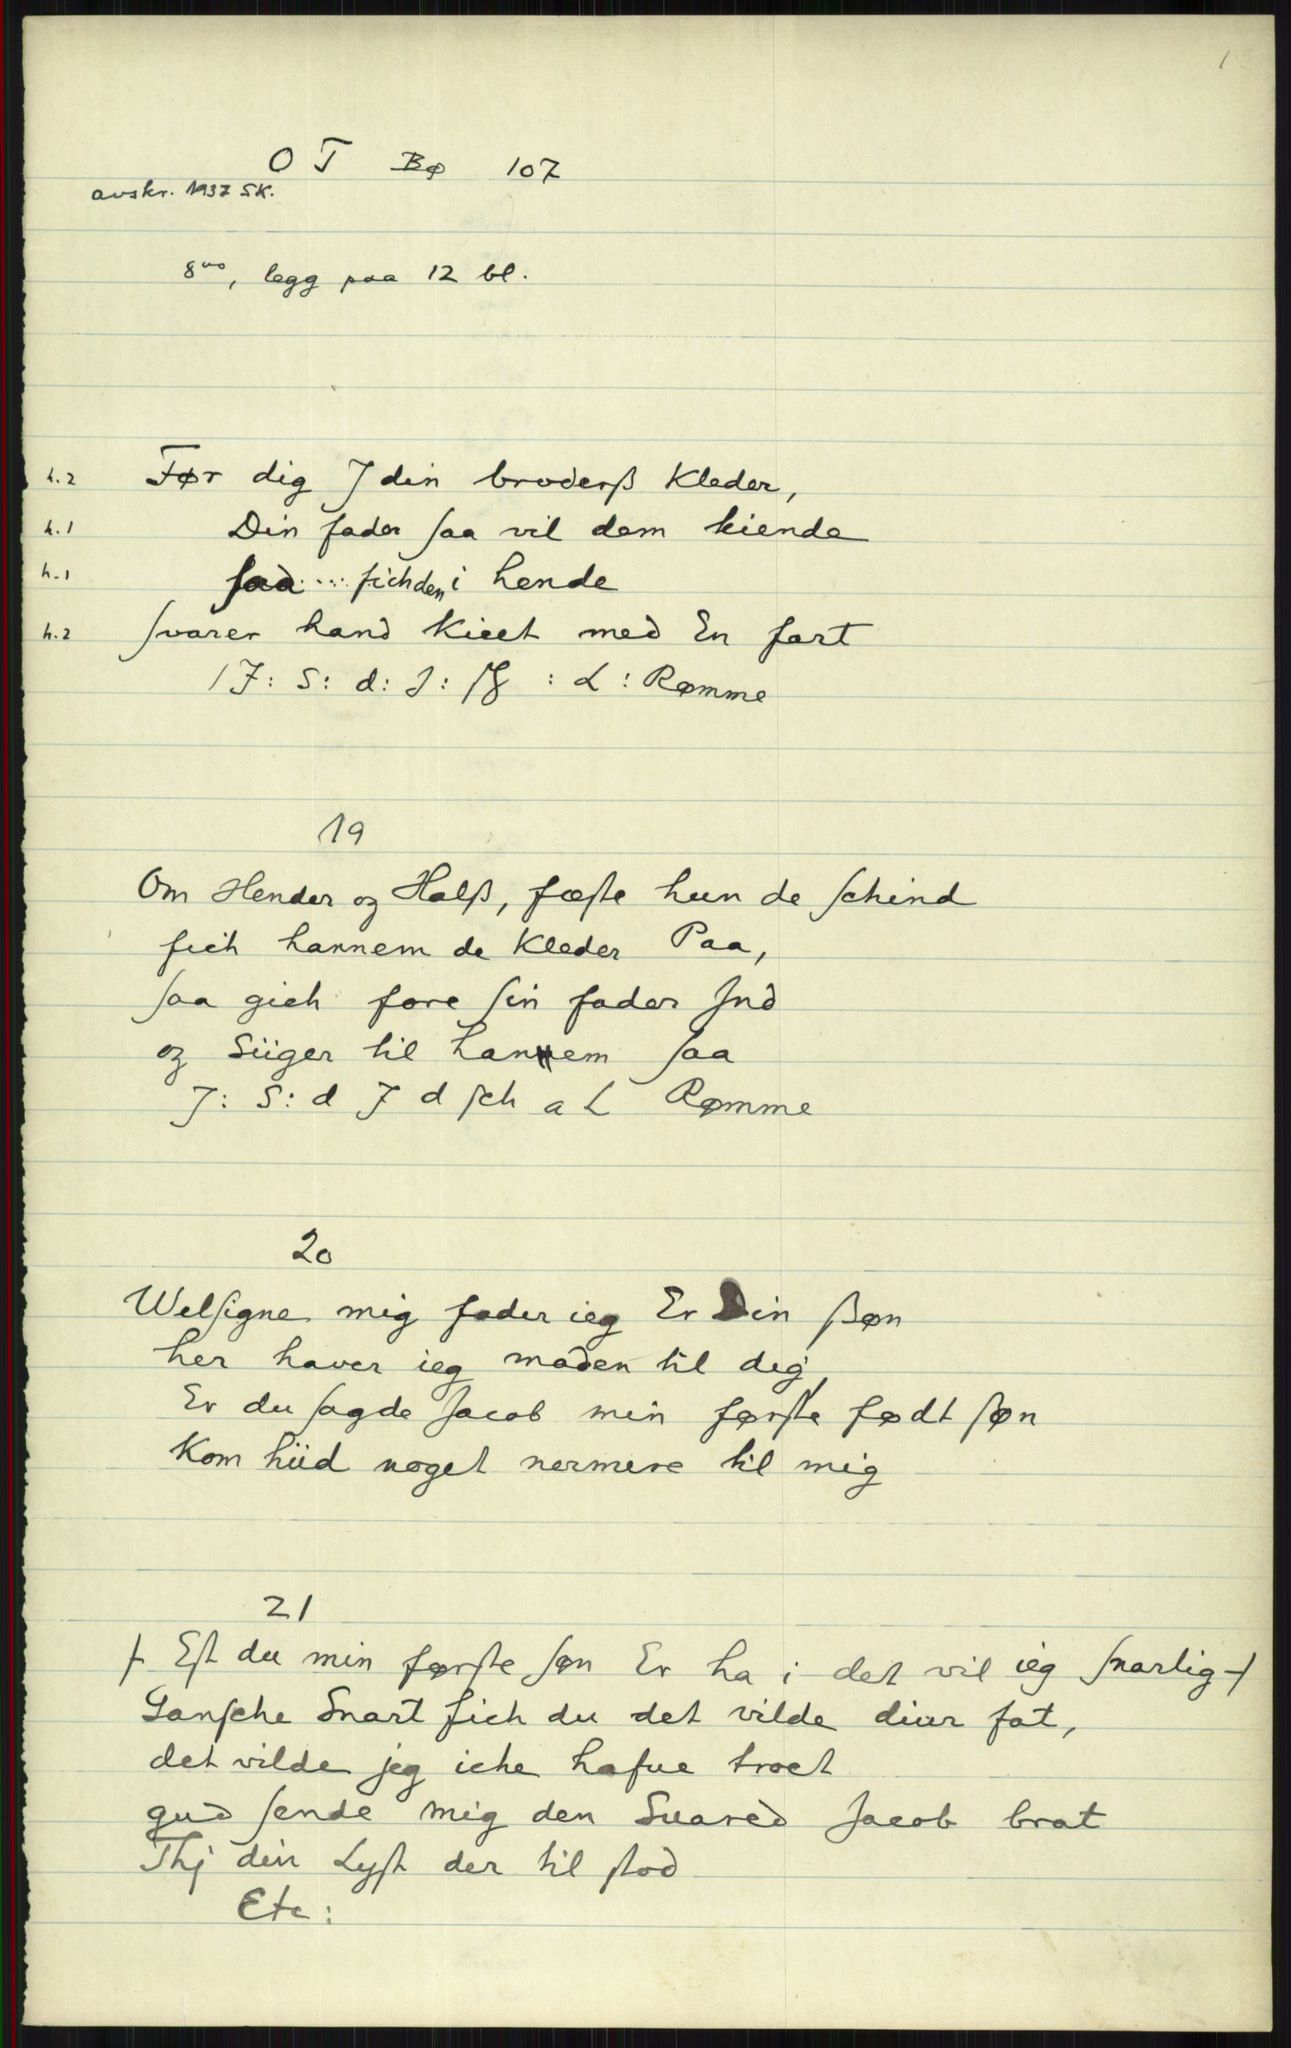 1
O T Bø 107
avskr. 1937 SK.
8vo, legg paa 12 bl.
h.2 Før dig J din broderß Kleder,
h.1 Din fader ſaa vil dem kiende
h.1 ſaa .... fich den i hende
h.2 ſvarer hand kiect med En fart
J: S: d: J: : L: Rømme
19
Om Hender og Halß, fæſte hun de ſchind
fich hannem de Kleder Paa,
ſaa gich fore ſin fader Jnd
og Siiger til hannem ſaa
J: S: d J d ſch a L Rømme
20
Welſigne mig fader ieg Er Din ßøn
her haver ieg maden til dig
Er du ſagde Jacob min førſte født ſøn
Kom hiid noget nermere til mig
21
Eſt du min førſte ſøn Er ha i det vil ieg ſnarlig
Ganſche Snart fich du det vilde diur fat,
det vilde jeg iche hafue troet
gud ſende mig den Suared Jacob brat
Thj din Lyſt der til ſtod
Etc: